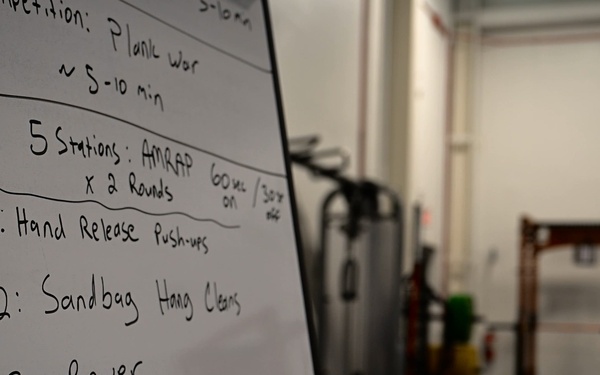 5-10 min
mpetition: Plank war
~ 5-10 min
5 Stations: AMRAP 60 sec on / 30s off
x 2 Rounds
: Hand Release Push-ups
2: Sandbag Hang Cleans